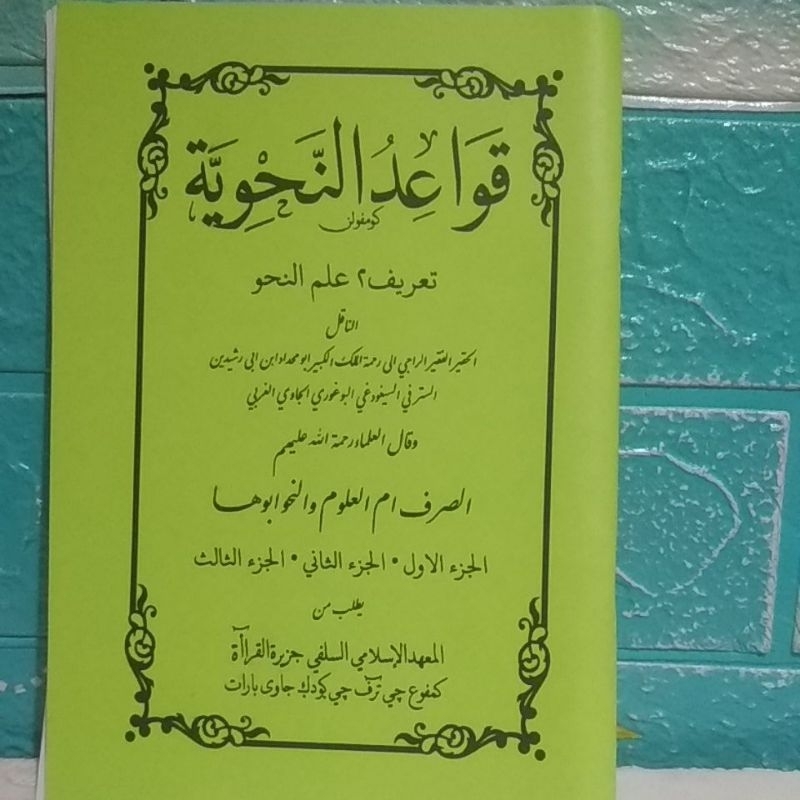 قَوَاعِدُ النَّحْوِيَّة
كومفولن
تعريف٢ علم النحو
الناقل
الحقير الفقير الراجي الى رحمة الملك الكبير ابو محمداد ابن ابى رشيدين
السترفي السيغودغي البوغوري الجاوي الغربي
وقال العلماء رحمة الله عليهم
الصرف ام العلوم والنحو ابوها
الجزء الاول • الجزء الثاني • الجزء الثالث
يطلب من
المعهد الإسلامي السلفي جزيرة القراأة
كمفوع چي ترف چي كودك جاوى بارات